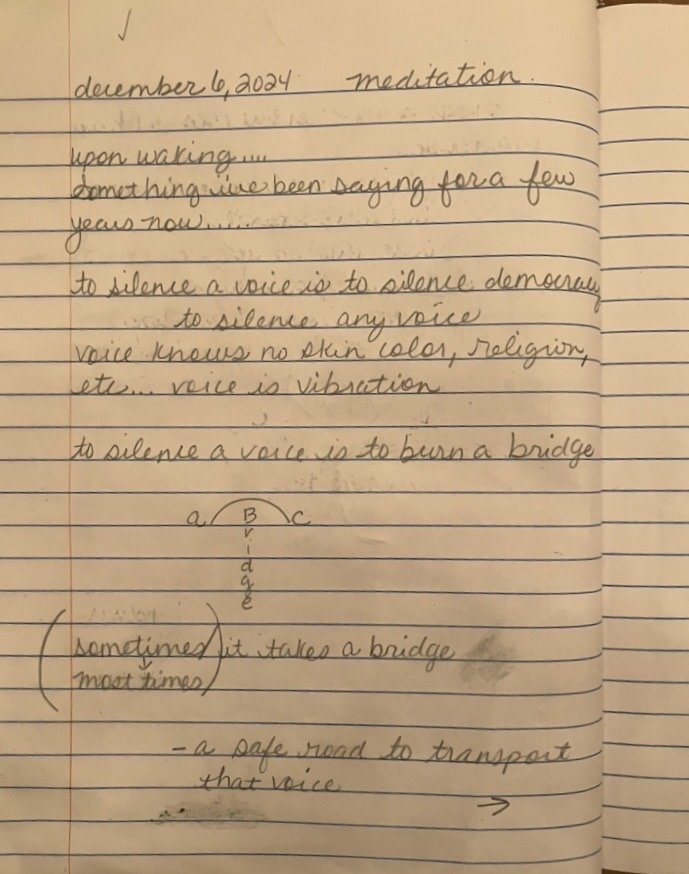 december 6, 2024 meditation.
upon waking....
something ive been saying for a few
years now......
to silence a voice is to silence democracy
to silence any voice
voice knows no skin color, religion,
etc... voice is vibration
to silence a voice is to burn a bridge
a B c
r
i
d
g
e
(sometimes) it takes a bridge
(most times)
- a safe road to transport
that voice
→